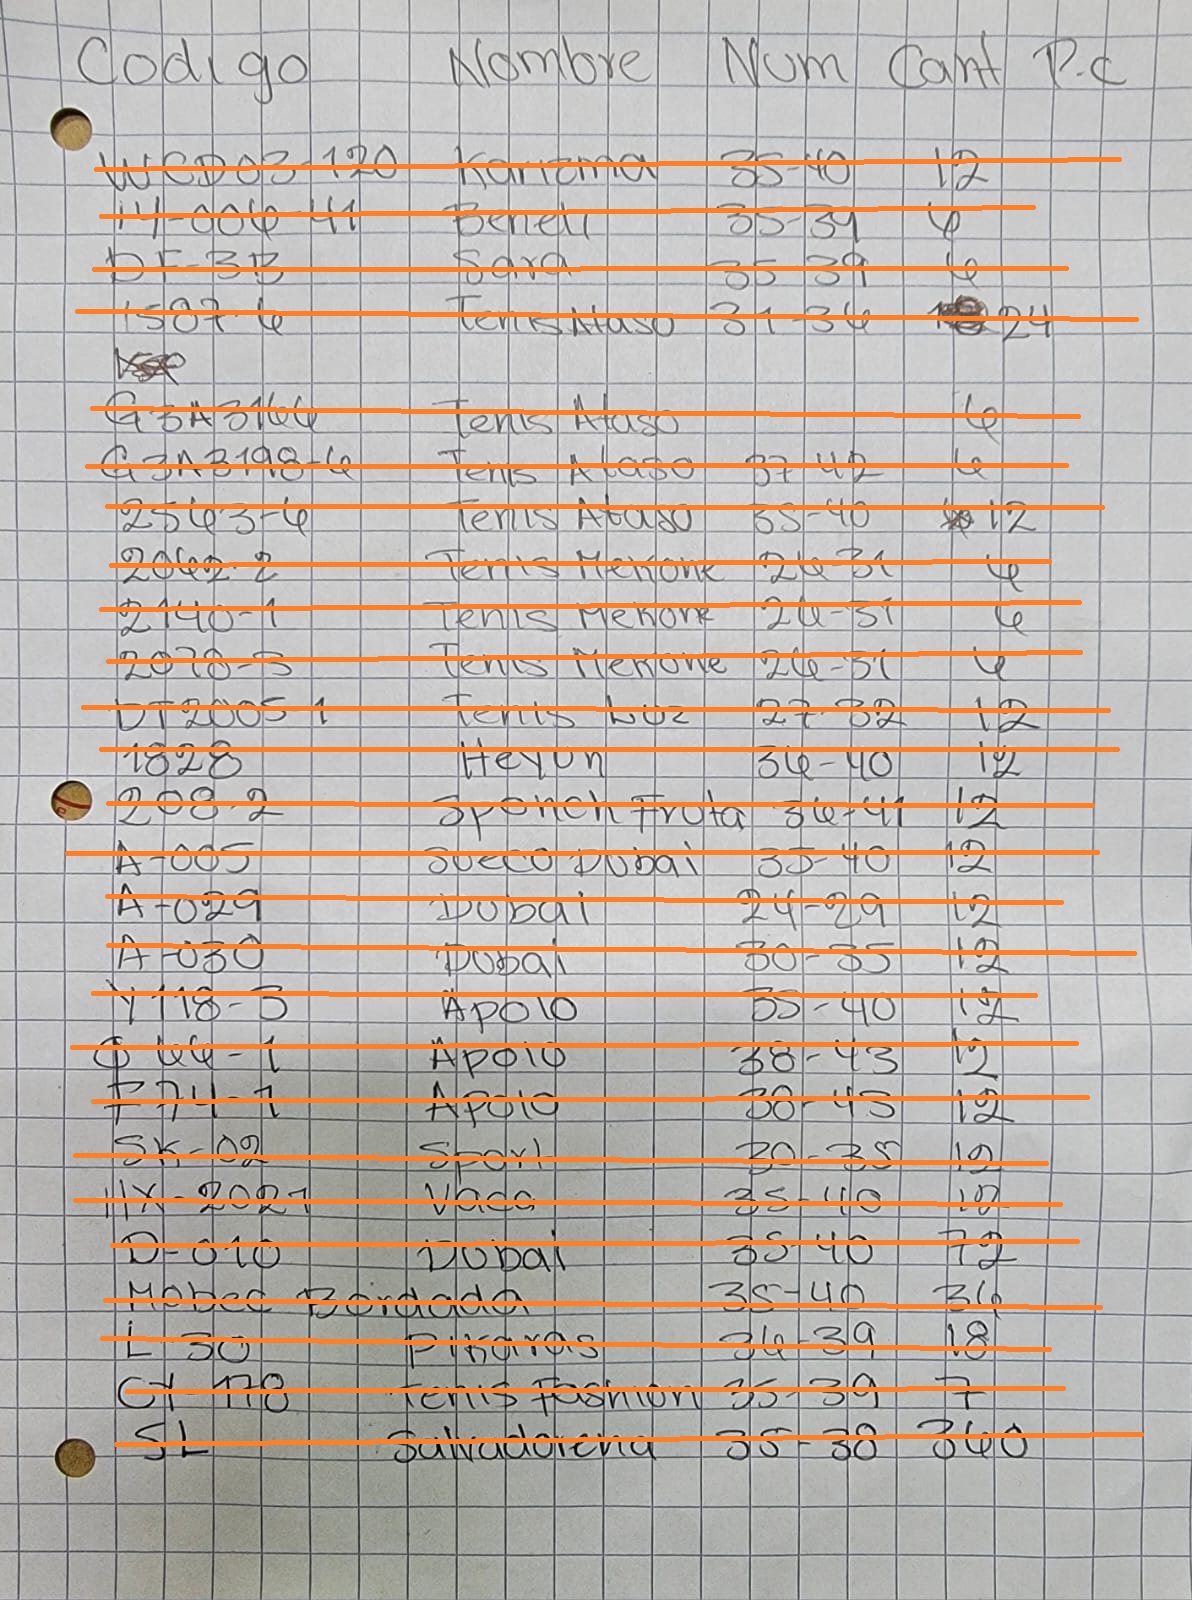 Codigo Nombre Num Cant P.C
WCD03-120 Karizma 35-40 12
14-006-41 Beneli 35-39 6
DF-3B Sara 35-39 6
1507-6 Tenis Ataso 31-36 24
G3A3166 Tenis Ataso 6
G3A3198-6 Tenis Ataso 37-42 6
2563-6 Tenis Ataso 35-40 12
2062-2 Tenis Mekone 26-31 6
2140-1 Tenis Mekone 26-31 6
2070-3 Tenis Mekone 26-31 6
DT2005-1 Tenis Luz 27-32 12
1828 Heyun 36-40 12
208-2 Sponch Fruta 36-41 12
A-005 Sueco Dubai 35-40 12
A-029 Dubai 24-29 12
A-030 Dubai 30-35 12
Y118-3 Apolo 35-40 12
66-1 Apolo 38-43 12
F74-1 Apolo 38-43 12
SK-02 Sport 30-35 12
HX-2021 Vaca 35-40 12
D-010 Dubai 35-40 72
Bordada 35-40 36
L 30 Pikaras 34-39 18
CY-178 Tenis Fashion 35-39 7
SL Salvadorena 35-38 360